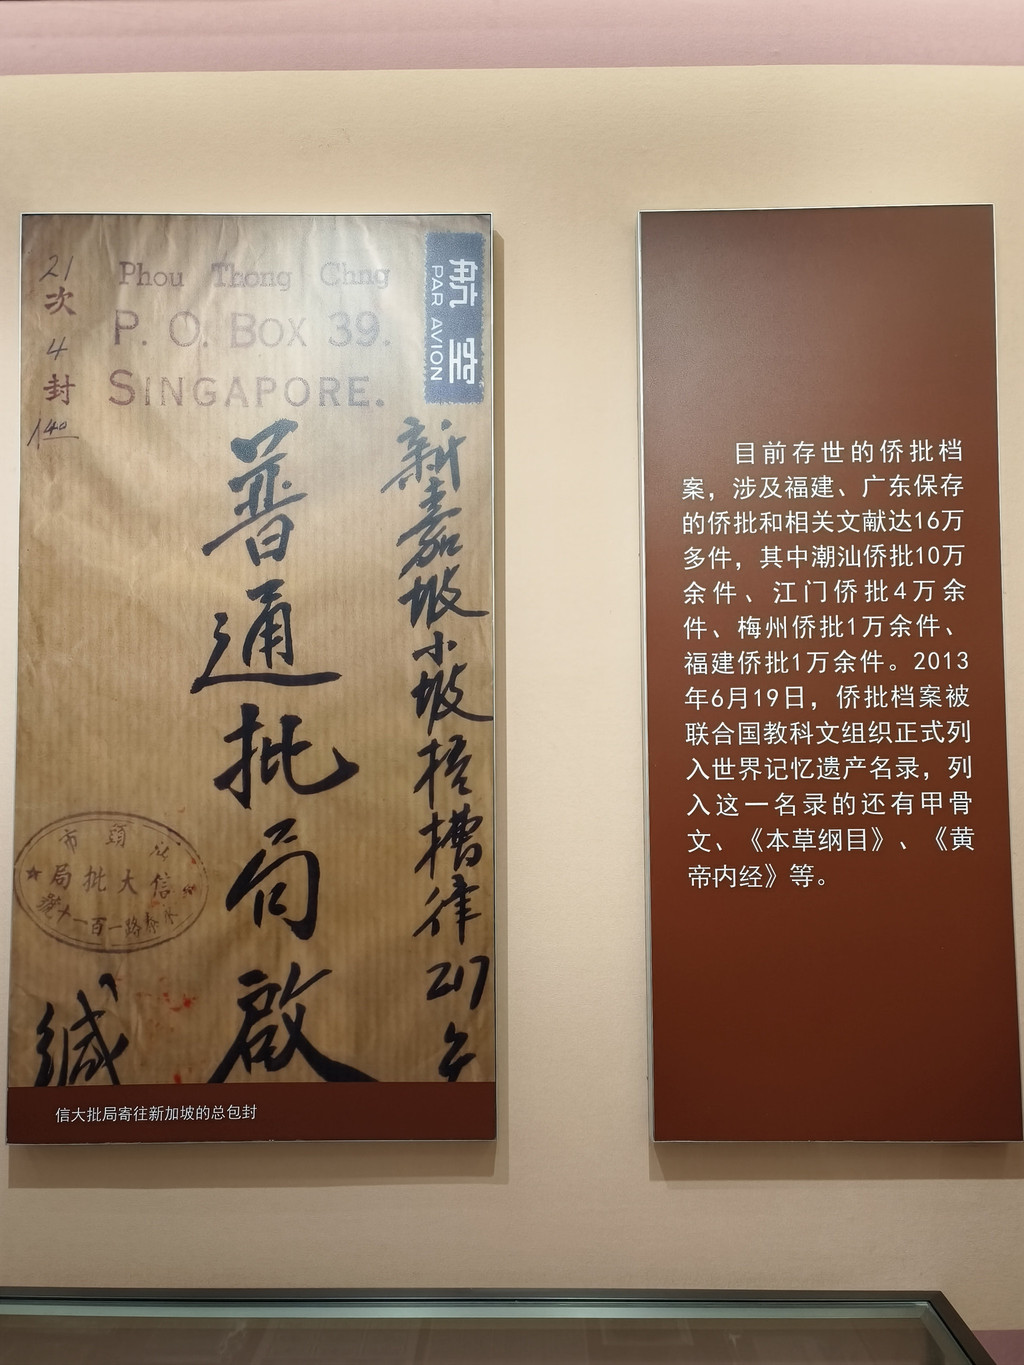 21
次
4
封
140
Phou Thong Chng
P. O. BOX 39.
SINGAPORE.
航空
PAR AVION
新嘉坡小坡梧槽律217号
普通批局啟
汕頭市
信大批局
永泰路一百一十號
缄
信大批局寄往新加坡的总包封
目前存世的侨批档
案，涉及福建、广东保存
的侨批和相关文献达16万
多件，其中潮汕侨批10万
余件、江门侨批4万余
件、梅州侨批1万余件、
福建侨批1万余件。2013
年6月19日，侨批档案被
联合国教科文组织正式列
入世界记忆遗产名录，列
入这一名录的还有甲骨
文、《本草纲目》、《黄
帝内经》等。